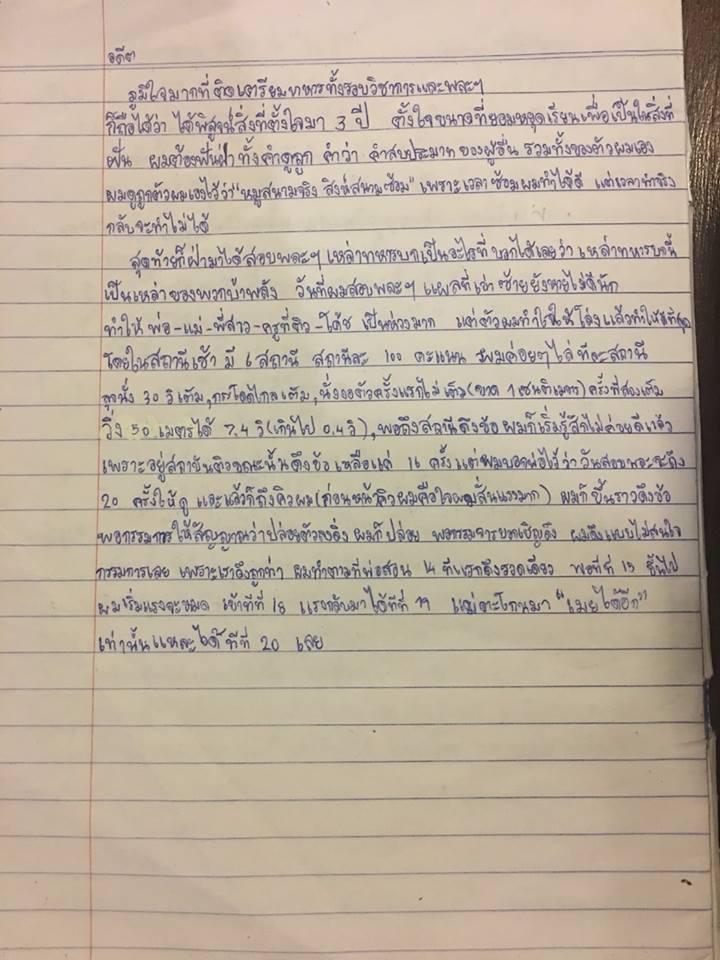 อดีต
ภูมิใจมากที่ติดเตรียมทหารทั้งรอบวิชาการและพละฯ
ก็ถือได้ว่า ได้พิสูจน์สิ่งที่ตั้งใจมา 3 ปี ตั้งใจขนาดที่ยอมหยุดเรียนเพื่อเป็นในสิ่งที่
ฝัน ผมต้องฟันฝ่า ทั้งคำดูถูก คำว่า คำสบประมาท ของผู้อื่น รวมทั้งของตัวผมเอง
ผมดูถูกตัวผมเองไว้ว่า "หมูสนามจริง สิงห์สนามซ้อม" เพราะเวลาซ้อมผมทำได้ดี แต่เวลาทำจริง
กลับจะทำไม่ได้
สุดท้ายก็ฝ่ามาได้สอบพละฯ เหล่าทหารบกเป็นอะไรที่บอกได้เลยว่า เหล่าทหารบกนี้
เป็นเหล่าของพวกบ้าพลัง วันที่ผมสอบพละฯ แผลที่เข่าซ้ายยังหายไม่ดีนัก
ทำให้ พ่อ-แม่-พี่สาว-ครูที่ติว-โค้ช เป็นห่วงมาก แต่ตัวผมทำใจให้โล่งแล้วทำให้ดีที่สุด
โดยในสถานีเช้า มี 6 สถานี สถานีละ 100 คะแนน ผมค่อยๆไล่ ทีละสถานี
ลุกนั่ง 30 วิเต็ม, กระโดดไกลเต็ม, นั่งงอตัวครั้งแรกไม่เต็ม(ขาด 1 เซนติเมตร) ครั้งที่สองเต็ม
วิ่ง 50 เมตรได้ 7.4 วิ(เกินไป 0.4 วิ), พอถึงสถานีดึงข้อ ผมก็เริ่มรู้สึกไม่ค่อยดีแล้ว
เพราะอยู่สถาบันติวขณะนั้นดึงข้อ เหลือแค่ 16 ครั้ง แต่ผมบอกพ่อไว้ว่าวันสอบพละจะดึง
20 ครั้งให้ดู และแล้วก็ถึงคิวผม(ก่อนหน้าคิวผมคือใจผมสั่นแรงมาก) ผมก็ขึ้นราวดึงข้อ
พอกรรมการให้สัญญาณว่าปล่อยตัวลงดิ่ง ผมก็ปล่อย พอกรรมการบอกเชิญดึง ผมดึงแบบไม่สนใจ
กรรมการเลย เพราะเราดึงถูกท่า ผมทำตามที่พ่อสอน 14 ทีแรกดึงรวดเดียว พอทีที่ 15 ขึ้นไป
ผมเริ่มแรงจะหมด เข้าทีที่ 18 แรงกลับมาได้ทีที่ 19 แม่ตะโกนมา "เมยได้อีก"
เท่านั้นแหละได้ ทีที่ 20 เลย